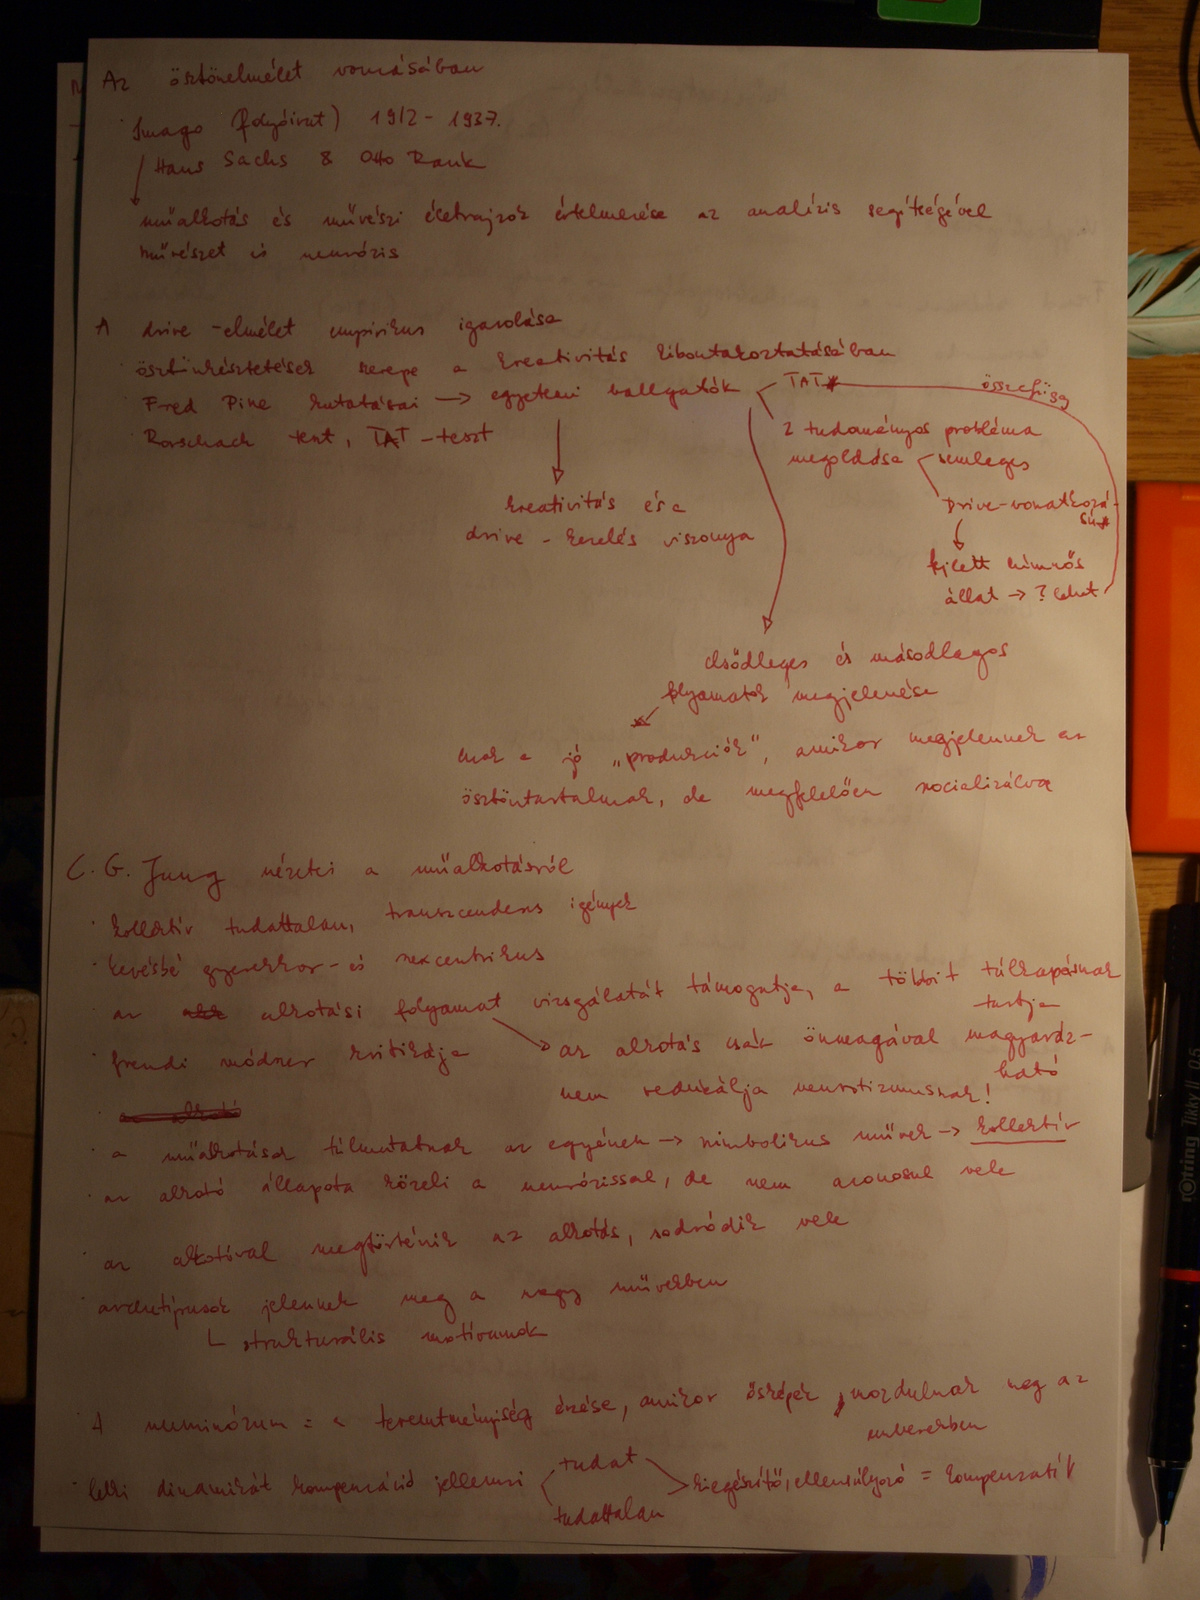 Az ösztönelmélet vonzásában
Imago (folyóirat) 1912 - 1937.
Hans Sachs & Otto Rank
műalkotás és művészi életrajzok értelmezése az analízis segítségével
művészet és neurózis
A drive -elmélet empirikus igazolása
ösztönkésztetések szerepe a kreativitás kibontakoztatásában
Fred Pine kutatásai → egyetemi hallgatók
TAT
összefügg
Rorschach teszt, TAT -teszt
2 tudományos probléma
megoldása
semleges
Drive-vonatkozá-
sú
kreativitás és a
drive - kezelés viszonya
kilett hímnős
állat → ? lehet
elsődleges és másodlagos
folyamatok megjelenése
azok a jó „produkciók", amikor megjelennek az
ösztöntartalmak, de megfelelően szocializálva
C. G. Jung nézetei a műalkotásról
· kollektív tudattalan, transzcendens igények
· kevésbé gyerekkor- és szexcentrikus
· az alkotási folyamat vizsgálatát támogatja, a többit túlkapásnak
tartja
· freudi módszer kritikája
az alkotás csak önmagával magyaráz-
ható
nem redukálja neurotizmusnak!
· a műalkotások túlmutatnak az egyénen → szimbolikus művek → kollektív
· az alkotó állapota közeli a neurózissal, de nem azonosul vele
· az alkotóval megtörténik az alkotás, sodródik vele
· archetípusok jelennek meg a nagy művekben
└ strukturális motívumok
A numinózum = a teremtményiség érzése, amikor ősképek mozdulnak meg az
emberekben
· lelki dinamikát kompenzáció jellemzi
tudat
tudattalan
kiegészítő, ellensúlyozó = kompenzatív